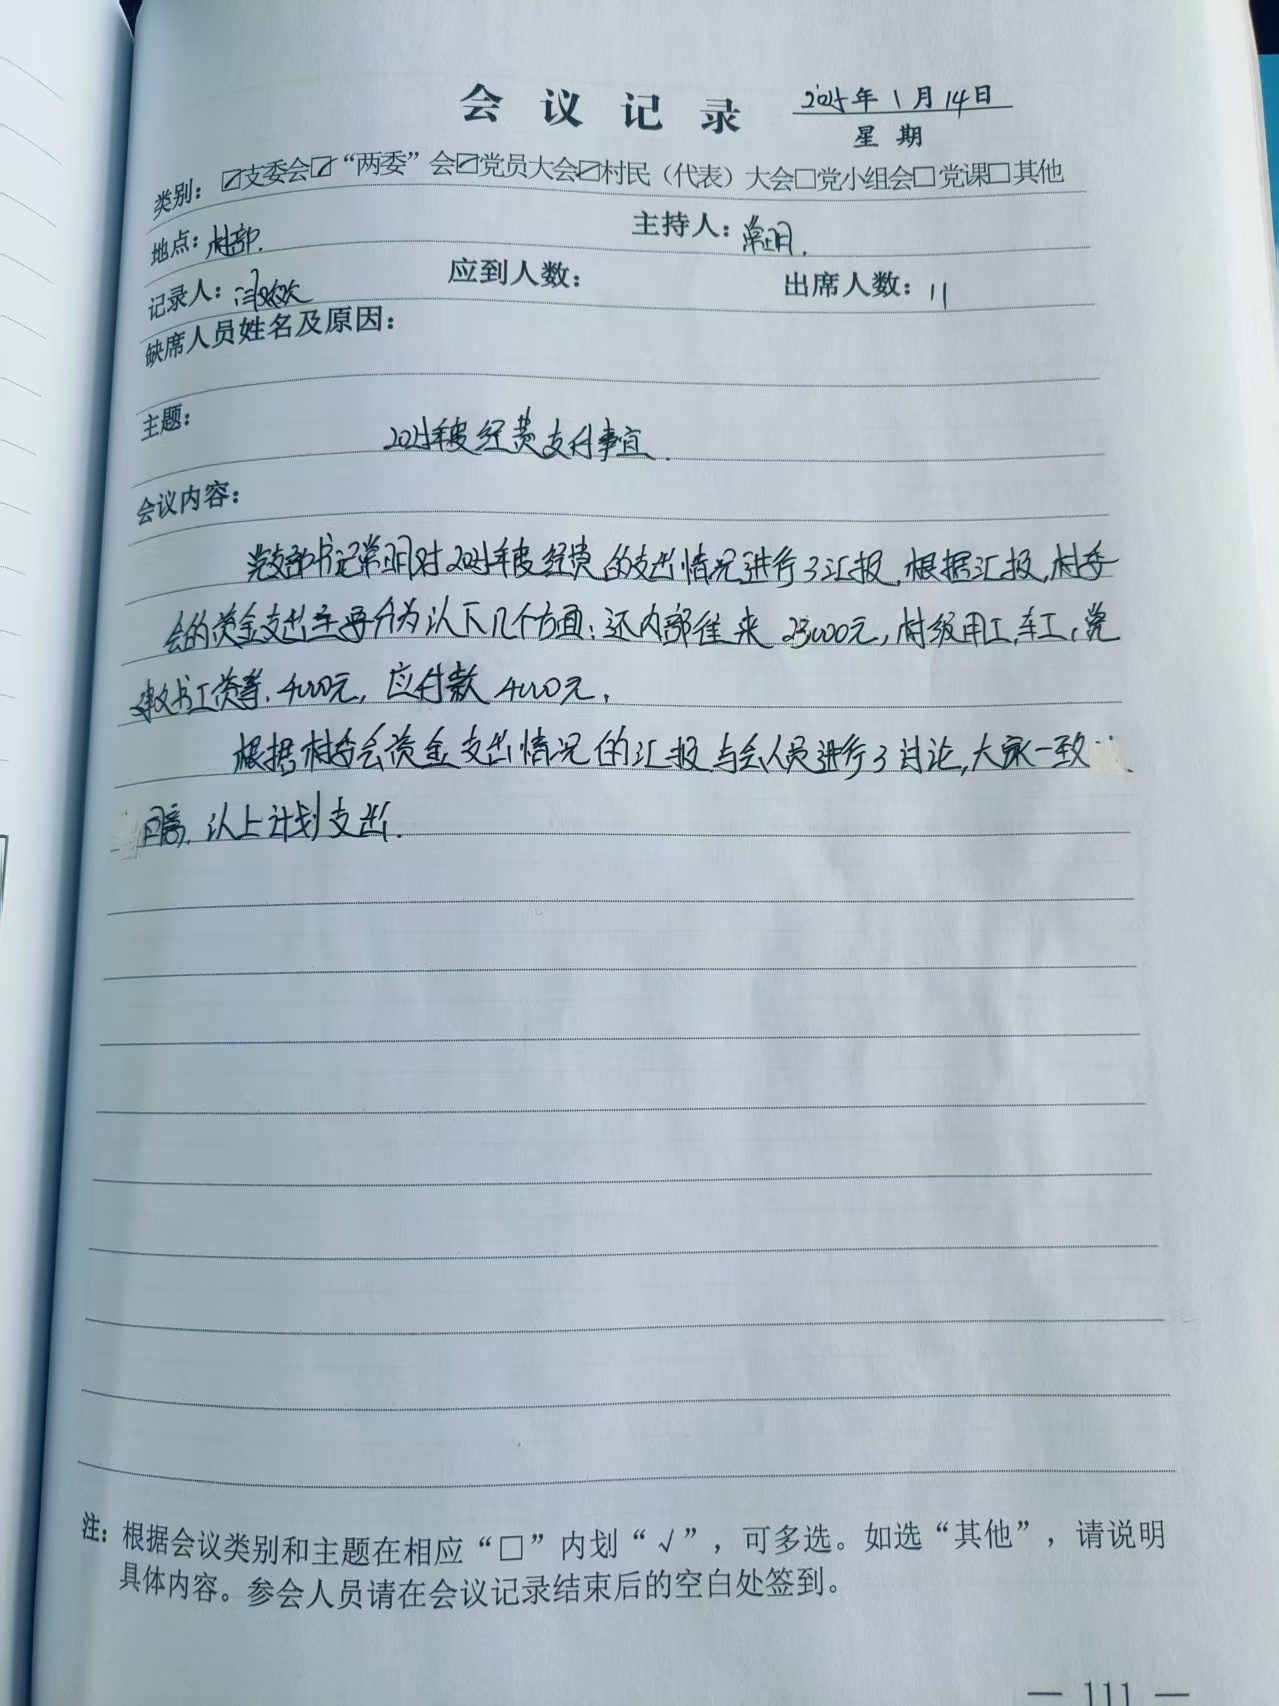 会议记录 2025年1月14日
星期
类别：☑支委会☑“两委”会☑党员大会☑村民（代表）大会□党小组会□党课□其他
地点：村部. 主持人：常明.
记录人： 应到人数： 出席人数：11
缺席人员姓名及原因：
主题： 2025年度经费支付事宜.
会议内容：
党支部书记常明对2025年度经费的支出情况进行了汇报,根据汇报,村委
会的资金支出主要分为以下几个方面：还内部往来25000元,村级用工,车工,党
建文书工资等.4000元,应付款4000元,
根据村委会资金支出情况的汇报,与会人员进行了讨论,大家一致
同意,以上计划支出.
注：根据会议类别和主题在相应“□”内划“√”，可多选。如选“其他”，请说明
具体内容。参会人员请在会议记录结束后的空白处签到。
— 111 —